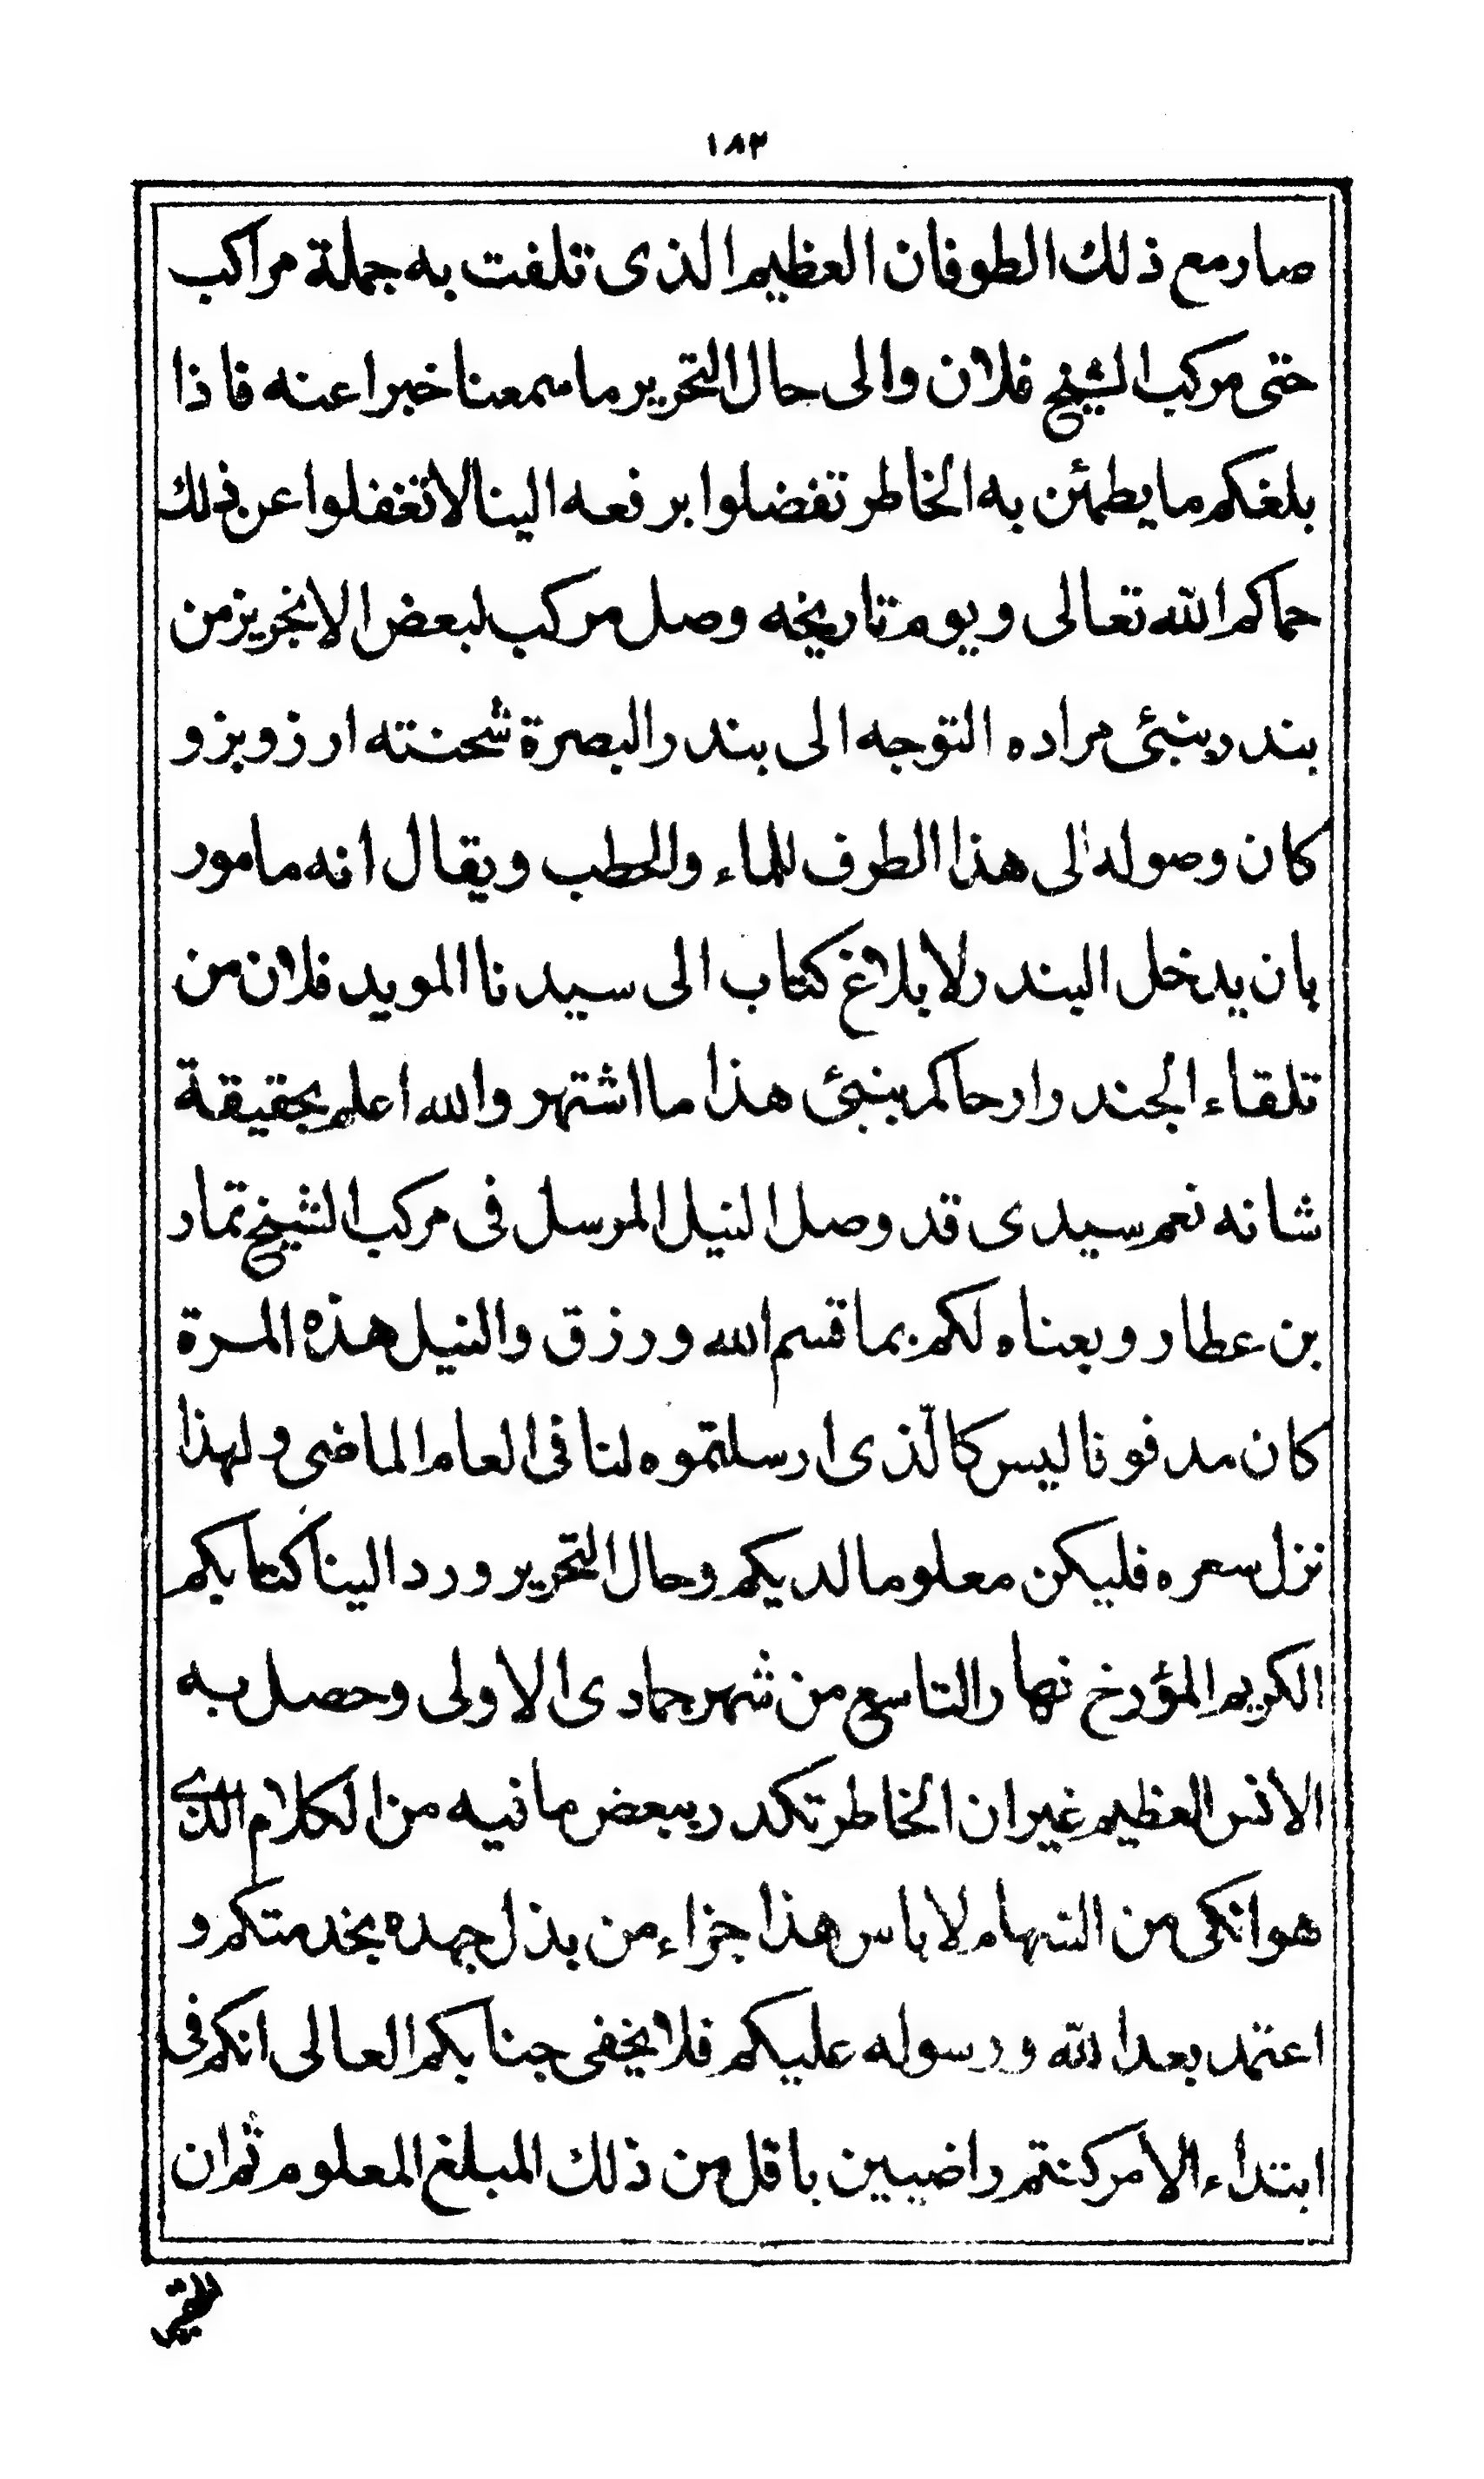 ١٨٣
صار مع ذلك الطوفان العظيم الذى تلفت به جملة مراكب
حتى مركب الشيخ فلان والى حال التحرير ما سمعنا خبرا عنه فاذا
بلغكم ما يطمئن به الخاطر تفضلوا برفعه الينا لا تغفلوا عن ذلك
حماكم الله تعالى ويوم تاريخه وصل مركب لبعض الانجريز من
بندر بنبئى مراده التوجه الى بندر البصرة شحنته ارز وبز و
كان وصوله الى هذا الطرف للماء والحطب ويقال انه مامور
بان يدخل البندر لابلاغ كتاب الى سيدنا المويد فلان من
تلقاء الجندرار حاكم بنبئى هذا ما اشتهر والله اعلم بحقيقة
شانه نعم سيدى قد وصل النيل المرسل فى مركب الشيخ تمار
بن عطار وبعناه لكم بما قسم الله ورزق والنيل هذه المرة
كان مدفونا ليس كالّذى ارسلتموه لنا فى العام الماضى ولهذا
نزل سعره فليكن معلوما لديكم وحال التحرير ورد الينا كتابكم
الكريم المؤرخ نهار التاسع من شهر جمادى الاولى وحصل به
الانس العظيم غير ان الخاطر تكدر ببعض ما فيه من الكلام الذى
هو انكى من السهام لا باس هذا جزاء من بذل جهده بخدمتكم و
اعتمد بعد الله ورسوله عليكم فلا يخفى جنابكم العالى انكم فى
ابتداء الامر كنتم راضيين باقل من ذلك المبلغ المعلوم ثم ان